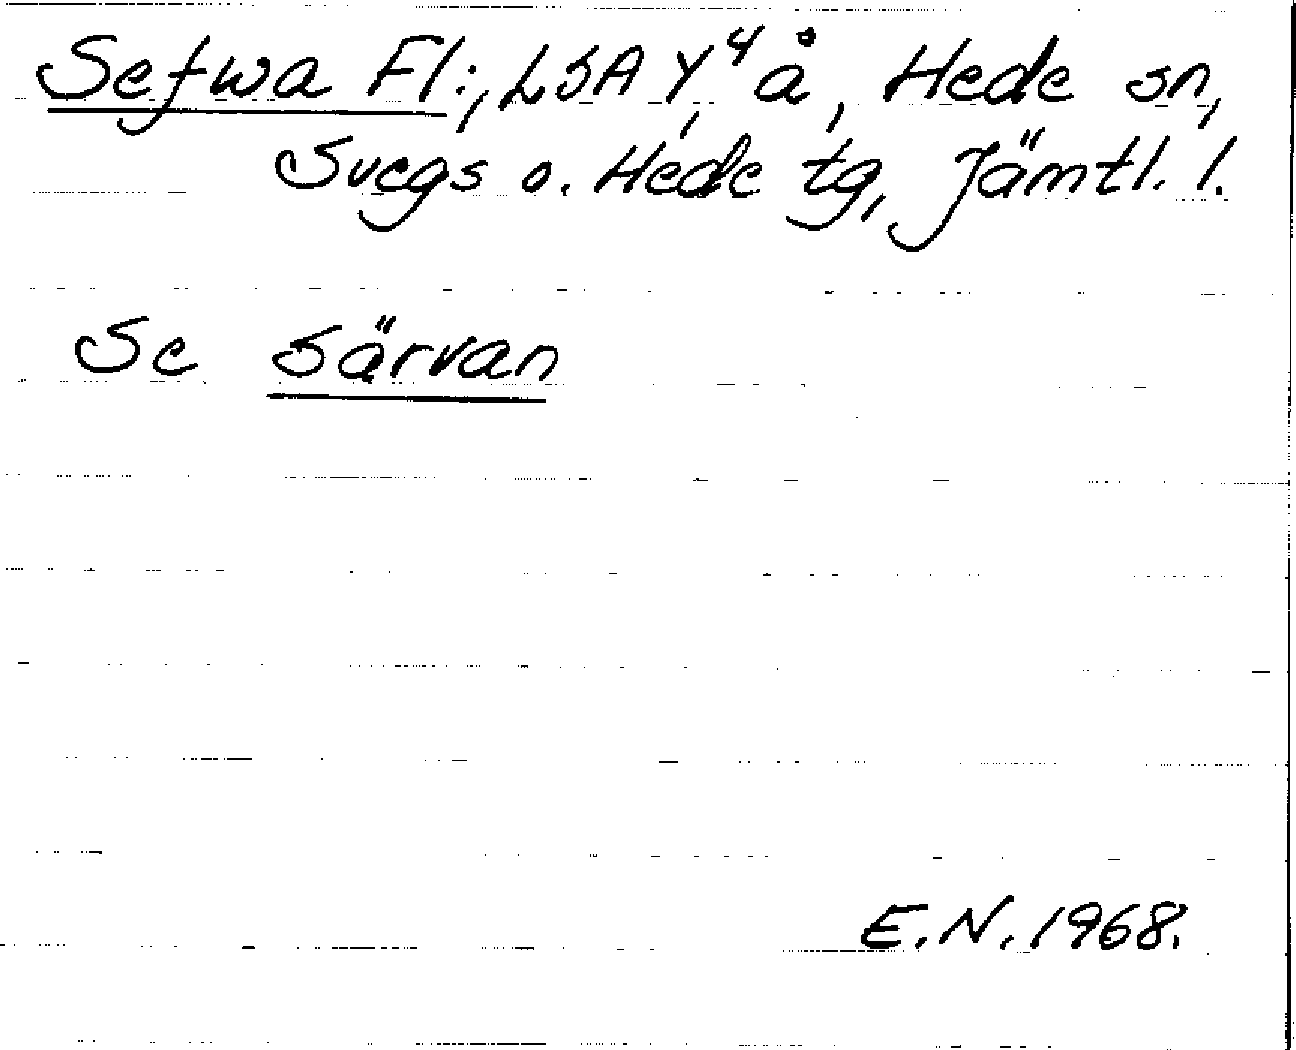 Sefwa Fl:, LSA Y⁴, å, Hede sn,
Svegs o. Hede tg, Jämtl. l.
Se Särvan
E.N. 1968.